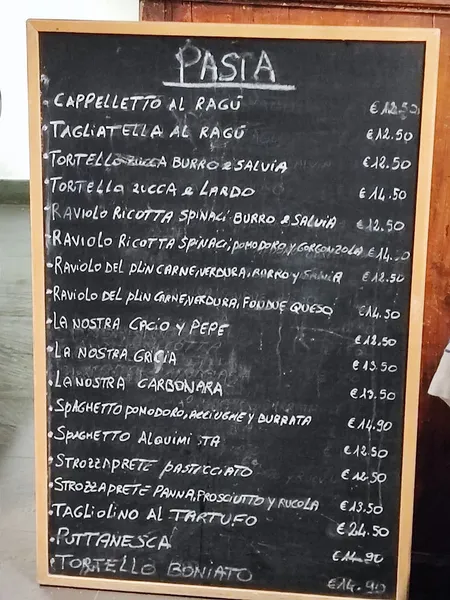 PASTA
CAPPELLETTO AL RAGÚ €12.50
TAGLIATELLA AL RAGÚ €12.50
TORTELLO ZUCCA BURRO e SALVIA €12.50
TORTELLO ZUCCA e LARDO €14.50
RAVIOLO RICOTTA SPINACI BURRO e SALVIA €12.50
RAVIOLO RICOTTA SPINACI, POMODORO, Y GORGONZOLA €14.50
RAVIOLO DEL PLIN CARNE, VERDURA, BURRO Y SALVIA €12.50
RAVIOLO DEL PLIN CARNE, VERDURA, FONDUE QUESO €14.50
LA NOSTRA CACIO Y PEPE €12.50
LA NOSTRA GRICIA €13.50
LA NOSTRA CARBONARA €13.50
SPAGHETTO POMODORO, ACCIUGHE Y BURRATA €14.90
SPAGHETTO ALQUIMISTA €12.50
STROZZAPRETE PASTICCIATO €12.50
STROZZAPRETE PANNA, PROSCIUTTO Y RUCOLA €13.50
TAGLIOLINO AL TARTUFO €24.50
PUTTANESCA €14.90
TORTELLO BONIATO €14.90